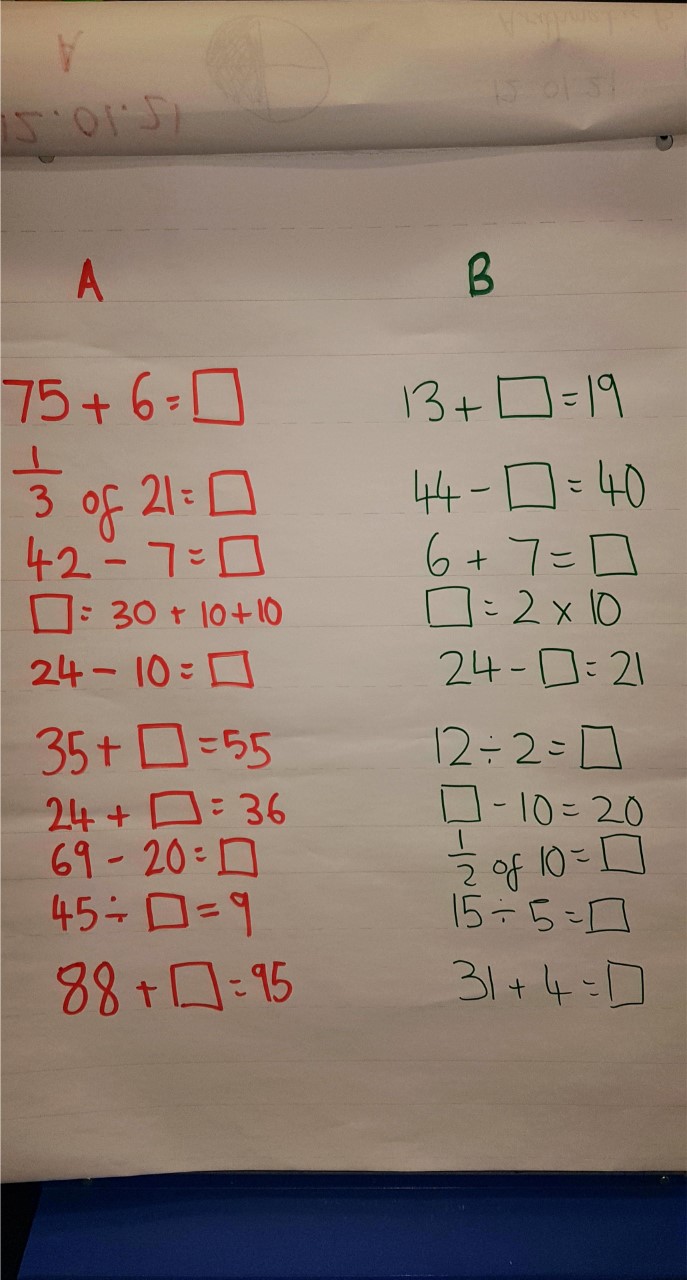 A
75 + 6 = □
1/3 of 21 = □
42 - 7 = □
□ = 30 + 10 + 10
24 - 10 = □
35 + □ = 55
24 + □ = 36
69 - 20 = □
45 ÷ □ = 9
88 + □ = 95
B
13 + □ = 19
44 - □ = 40
6 + 7 = □
□ = 2 x 10
24 - □ = 21
12 ÷ 2 = □
□ - 10 = 20
1/2 of 10 = □
15 ÷ 5 = □
31 + 4 = □